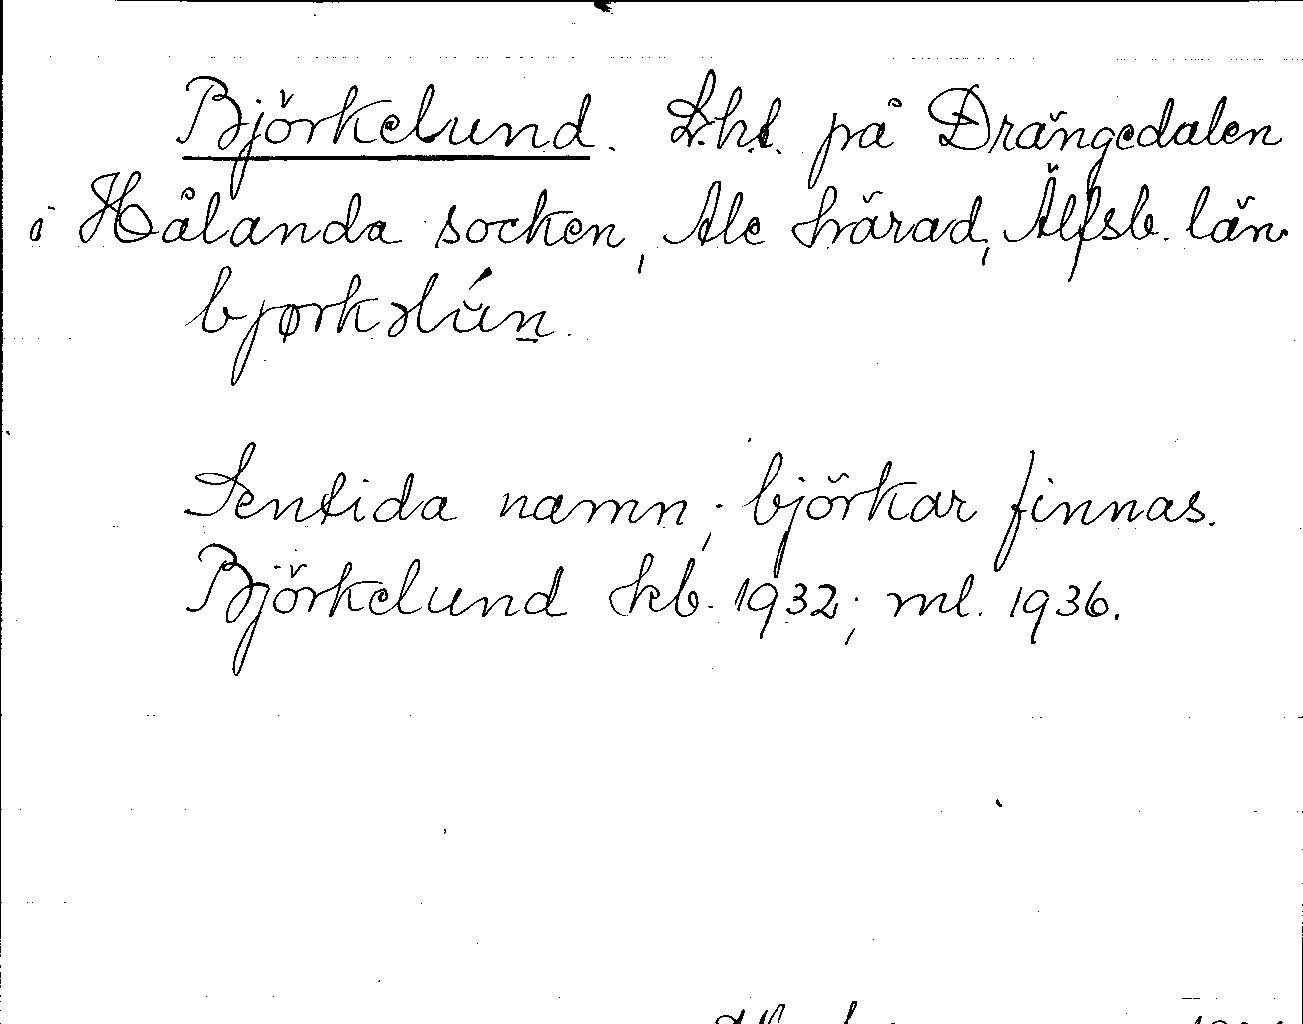 Björkelund. Lht. på Drängedalen
i Hålanda socken, Ale härad, Älfsb. län
bjørkəlún.
Sentida namn; björkar finnas.
Björkelund kb. 1932; ml. 1936.